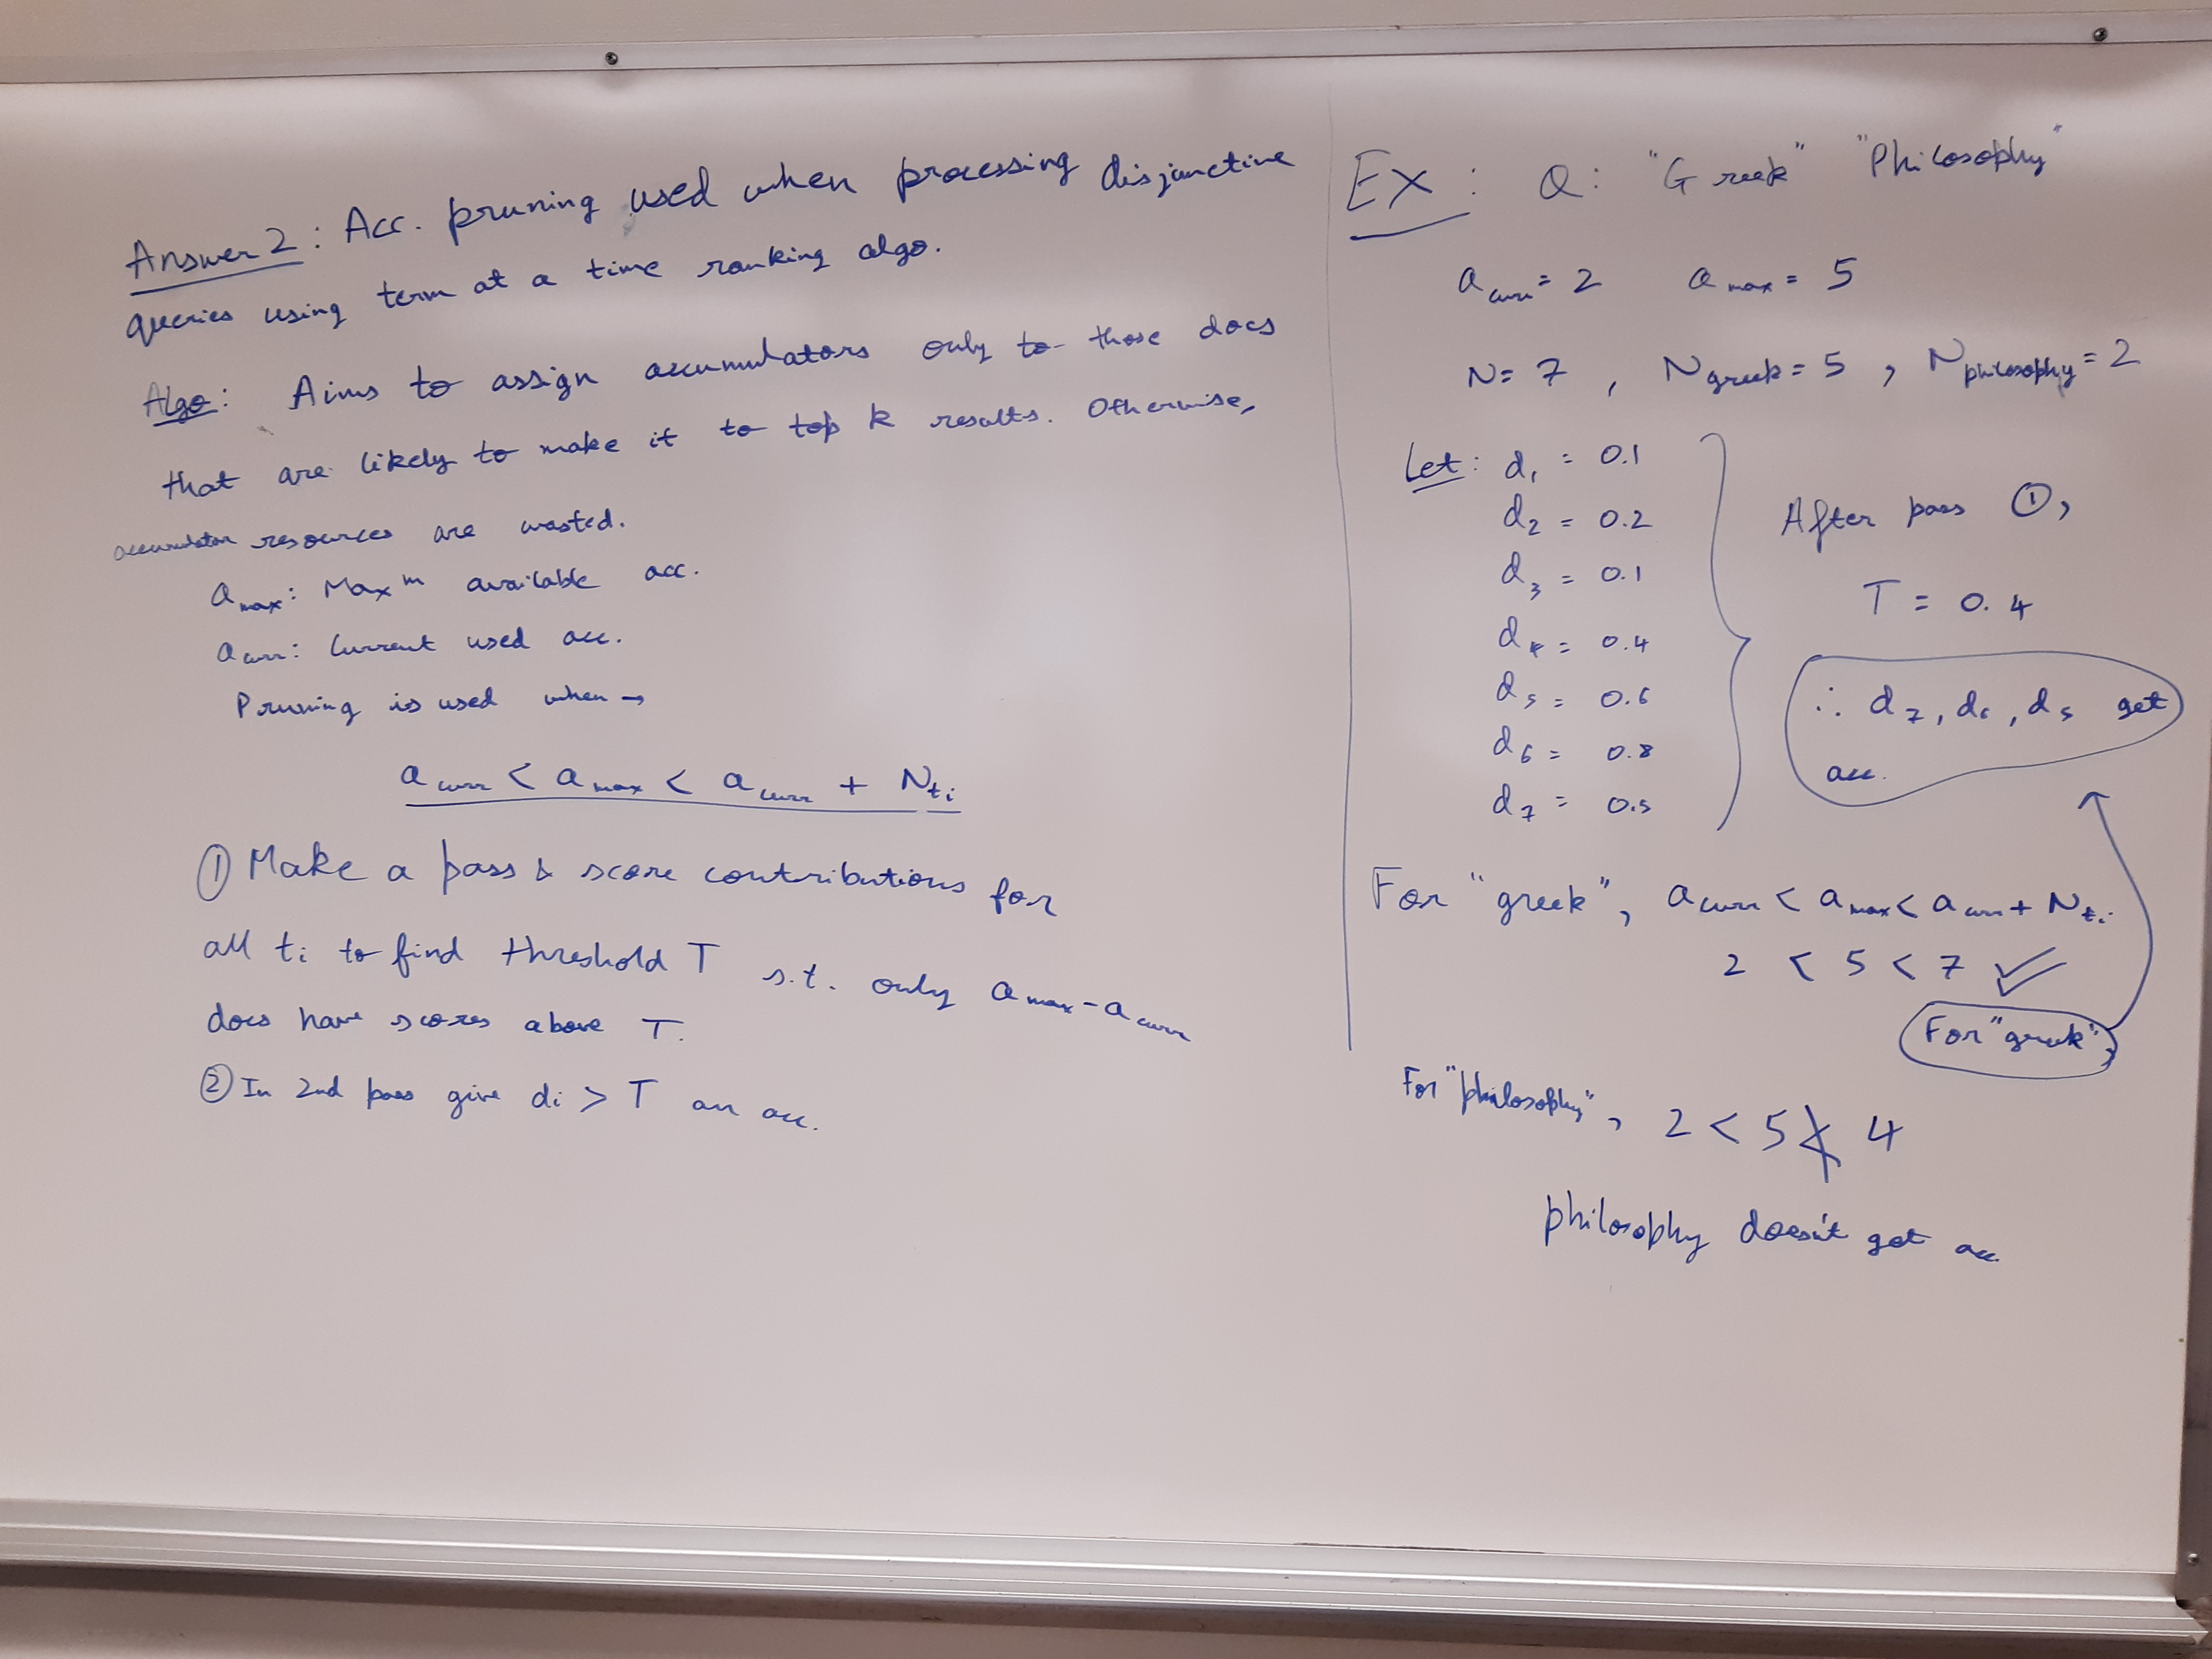 Answer 2 : Acc. pruning used when processing disjunctive
queries using term at a time ranking algo.
Algo: Aims to assign accumulators only to those docs
that are likely to make it to top k results. Otherwise,
accumulator resources are wasted.
a max : Max m available acc.
a curr : Current used acc.
Pruning is used when →
a curr < a max < a curr + N ti
① Make a pass & score contributions for
all ti to find threshold T s.t. only a max - a curr
docs have scores above T.
② In 2nd pass give di > T an acc.
Ex : Q : "Greek" "Philosophy"
a curr = 2 a max = 5
N = 7 , N greek = 5 , N philosophy = 2
Let : d1 = 0.1
d2 = 0.2
d3 = 0.1
d4 = 0.4
d5 = 0.6
d6 = 0.8
d7 = 0.5
After pass ①,
T = 0.4
∴ d7, d6, d5 get
acc.
For "greek", a curr < a max < a curr + N ti
2 < 5 < 7 ✓
For "greek",
For "philosophy", 2 < 5 ≮ 4
philosophy doesn't get acc.